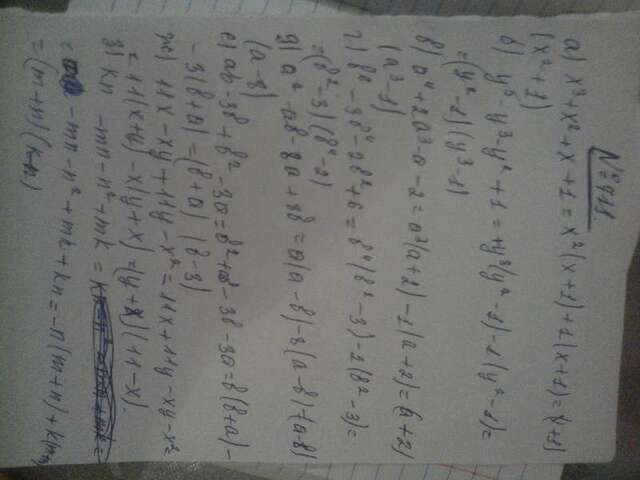 № 918
а) x³+x²+x+1 = x²(x+1)+1(x+1)=(x+1)
(x²+1)
б) y⁵-y³-y²+1 = +y³(y²-1)-1(y²-1)=
=(y²-1)(y³-1)
в) a⁴+2a³-a-2 = a³(a+2)-1(a+2)=(a+2)
(a³-1)
г) b⁶-3b⁴-2b²+6 = b⁴(b²-3)-2(b²-3)=
=(b²-3)(b⁴-2)
д) a²-ab-8a+8b = a(a-b)-8(a-b)=(a-b)
(a-8)
е) ab-3b+b²-3a=b²+ab-3b-3a=b(b+a)-
-3(b+a)=(b+a)(b-3)
ж) 11x-xy+11y-x²=11x+11y-xy-x²=
=11(x+y)-x(y+x)=(y+x)(11-x)
з) kn-mn-n²+mk =
= -mn-n²+mk+kn=-n(m+n)+k(m+n)
=(m+n)(k-n)